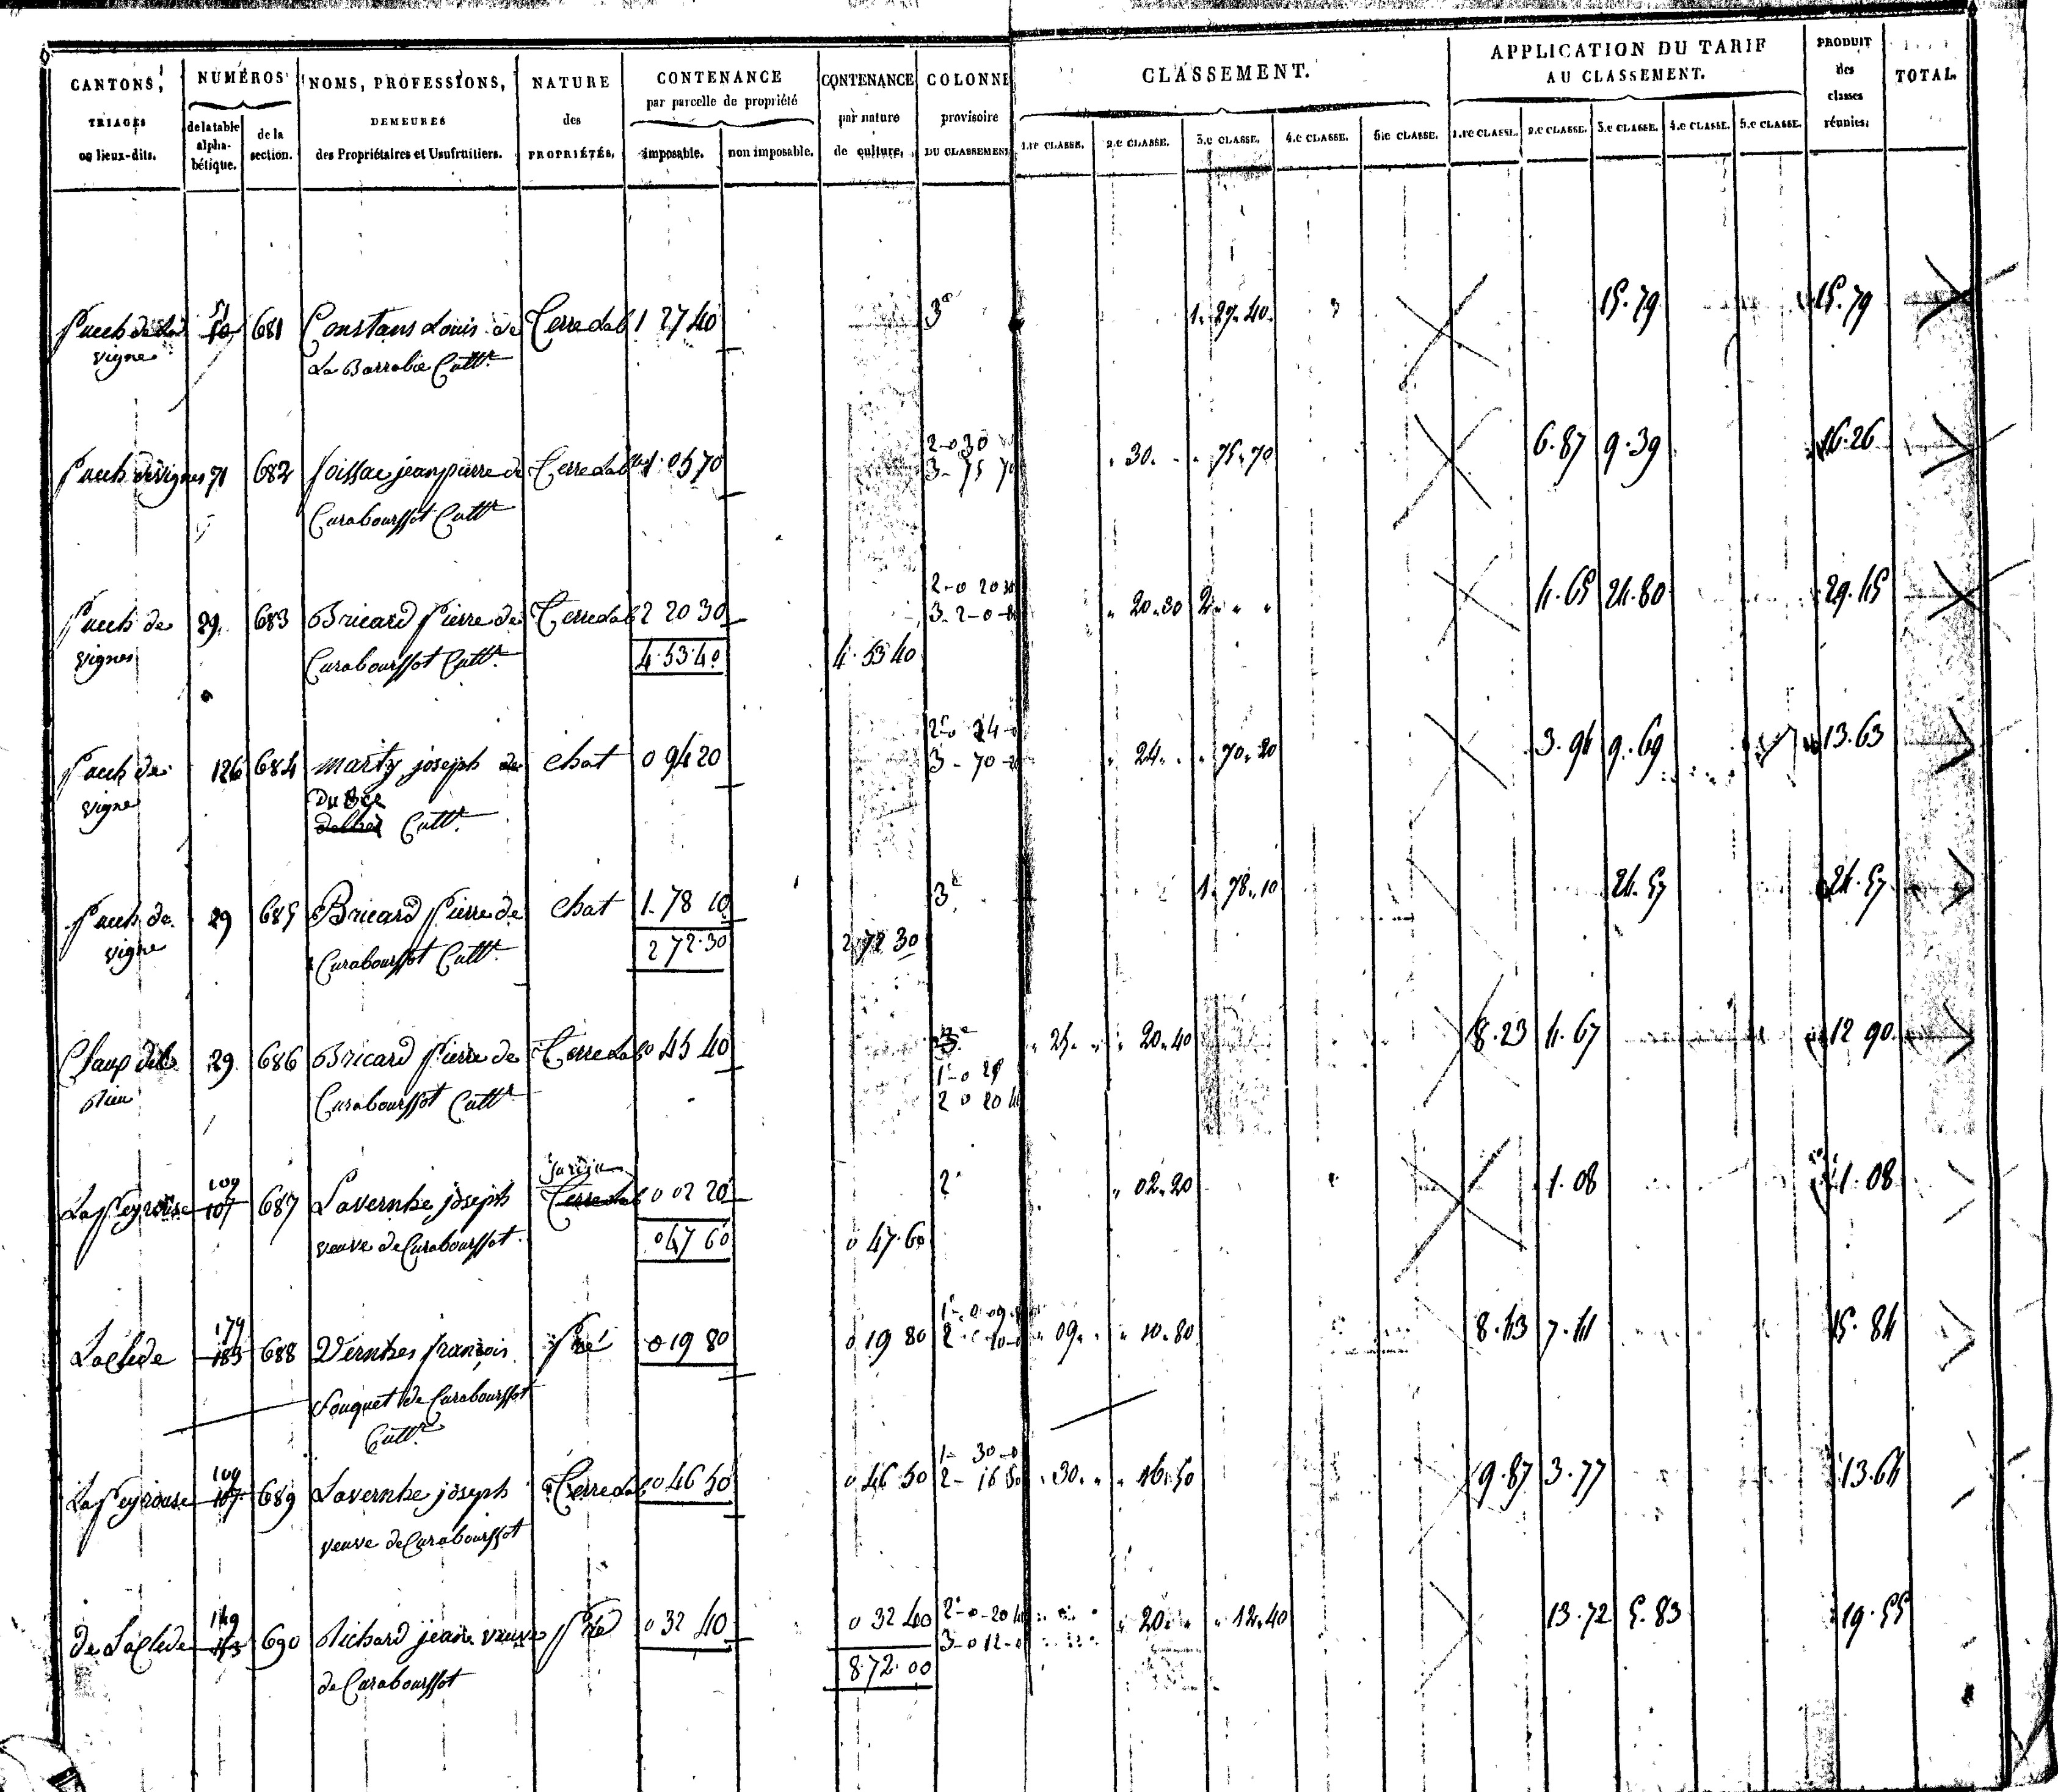 CANTONS, TRIAGES ou lieux-dits. NUMÉROS de la table alpha-bétique. de la section. NOMS, PROFESSIONS, DEMEURES des Propriétaires et Usufruitiers. NATURE des PROPRIÉTÉS. CONTENANCE par parcelle de propriété imposable. non imposable. CONTENANCE par nature de culture. COLONNE provisoire DU CLASSEMENT CLASSEMENT. 1.re CLASSE. 2.e CLASSE. 3.e CLASSE. 4.e CLASSE. 5.e CLASSE. APPLICATION DU TARIF AU CLASSEMENT. 1.re CLASSE. 2.e CLASSE. 3.e CLASSE. 4.e CLASSE. 5.e CLASSE. PRODUIT des classes réunies. TOTAL.
Puech de la 681 Constans Louis de Terre Lab 1 27 40 3e 1. 27. 40. 15.79 15.79
vigne La Barrabie Cultr
Puech de vignes 71 682 foissac jean pierre de Terre Lable 1. 05 70 2-0 30 . 30. . . 75. 70 6.87 9.39 16.26
3- 75 70
Carabourssot Cultr
2-0 20 30
Puech de 29. 683 Bricard Pierre de Terre Lab 2 20 30 3. 2-0-0 " 20.30 2. " " 4.65 24.80 29.45
vignes Carabourssot Cultr 4.53.40 4.53 40
2e 0 24-0
Puech de 126 684 marty joseph de chat 0 94 20 3- 70-20 " 24. . . 70. 20 3.94 9.69 13.63
vigne Cultr
Puech de 29 685 Bricard Pierre de chat 1. 78 10 3e 1. 78. 10 24.57 24.57
vigne Carabourssot Cultr 2 72.30 2 72 30
Claup del 29. 686 Bricard Pierre de Terre Lab 0 45 40 3e " 25. " " 20.40 8.23 4.67 12 90
Carabourssot Cultr 1-0 25
2 0 20 4
109 jardin
La Peyrouse 107 687 Lavernhe joseph Terre Lab 0 02 20 2e " 02.20 1.08 1.08
veuve de Carabourssot. 0 47 60 0 47.60
179
Laclede 183 688 Vernhes françois Pré 0 19 80 0 19 80 " 09. . " 10.80 8.43 7.41 15.84
Fouquet de Carabourssot
Cultr
109 1- 30-0
La Peyrouse 107. 689 Lavernhe joseph Terre Lab 0 46 50 0 46 50 2- 16 50 . 30. " " 16.50 9.87 3.77 13.64
veuve de Carabourssot
149 2e-0-20
de Laclede 143 690 Richard jeane veuve Pré 0 32 40 0 32 40 3-0 12-0 " 20. " " 12.40 13.72 5.83 19.55
de Carabourssot 8.72.00